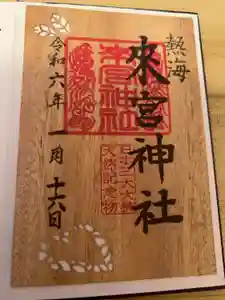 熱海
來宮神社
令和六年
一月
十六日
來宮神社
日本三大大楠
天然記念物